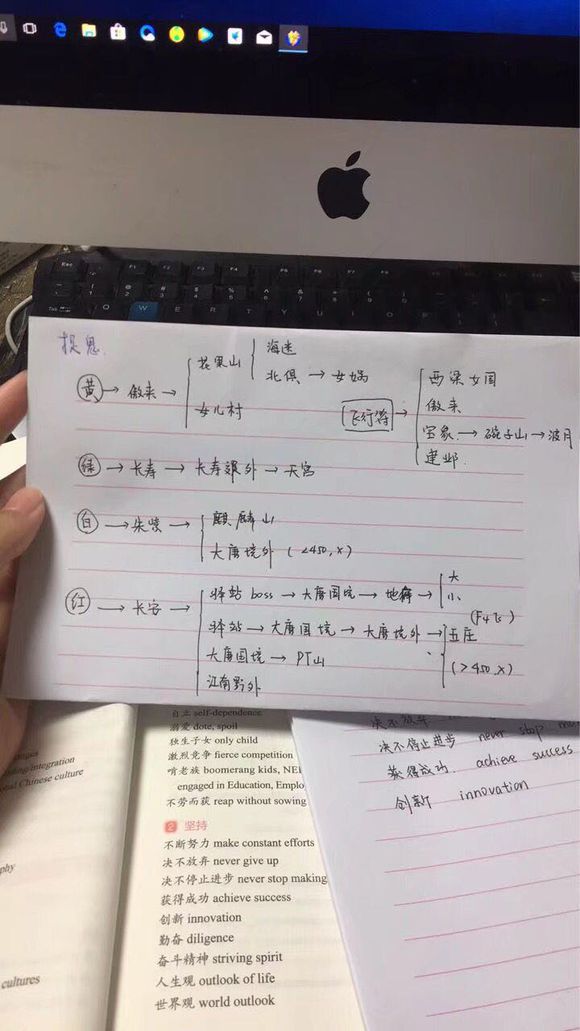 捉鬼
花果山 海迷
北俱 → 女娲
黄 → 傲来 →
女儿村
飞行符 → 西梁女国
傲来
宝象 → 碗子山 → 波月
建邺
绿 → 长寿 → 长寿郊外 → 天宫
白 → 朱紫 → 麒麟山
大唐境外 (<450, X)
红 → 长安 → 驿站 boss → 大唐国境 → 地府 → 大
小
驿站 → 大唐国境 → 大唐境外 → 五庄
(>450, X)
大唐国境 → PT山
江南野外
自立 self-dependence
溺爱 dote, spoil
独生子女 only child
激烈竞争 fierce competition
啃老族 boomerang kids, NEE
engaged in Education, Emplo
不劳而获 reap without sowing
2 坚持
不断努力 make constant efforts
决不放弃 never give up
决不停止进步 never stop making
获得成功 achieve success
创新 innovation
勤奋 diligence
奋斗精神 striving spirit
人生观 outlook of life
世界观 world outlook
integration
Chinese culture
phy
cultures
决不放弃
决不停止进步 never stop
获得成功 achieve success
创新 innovation